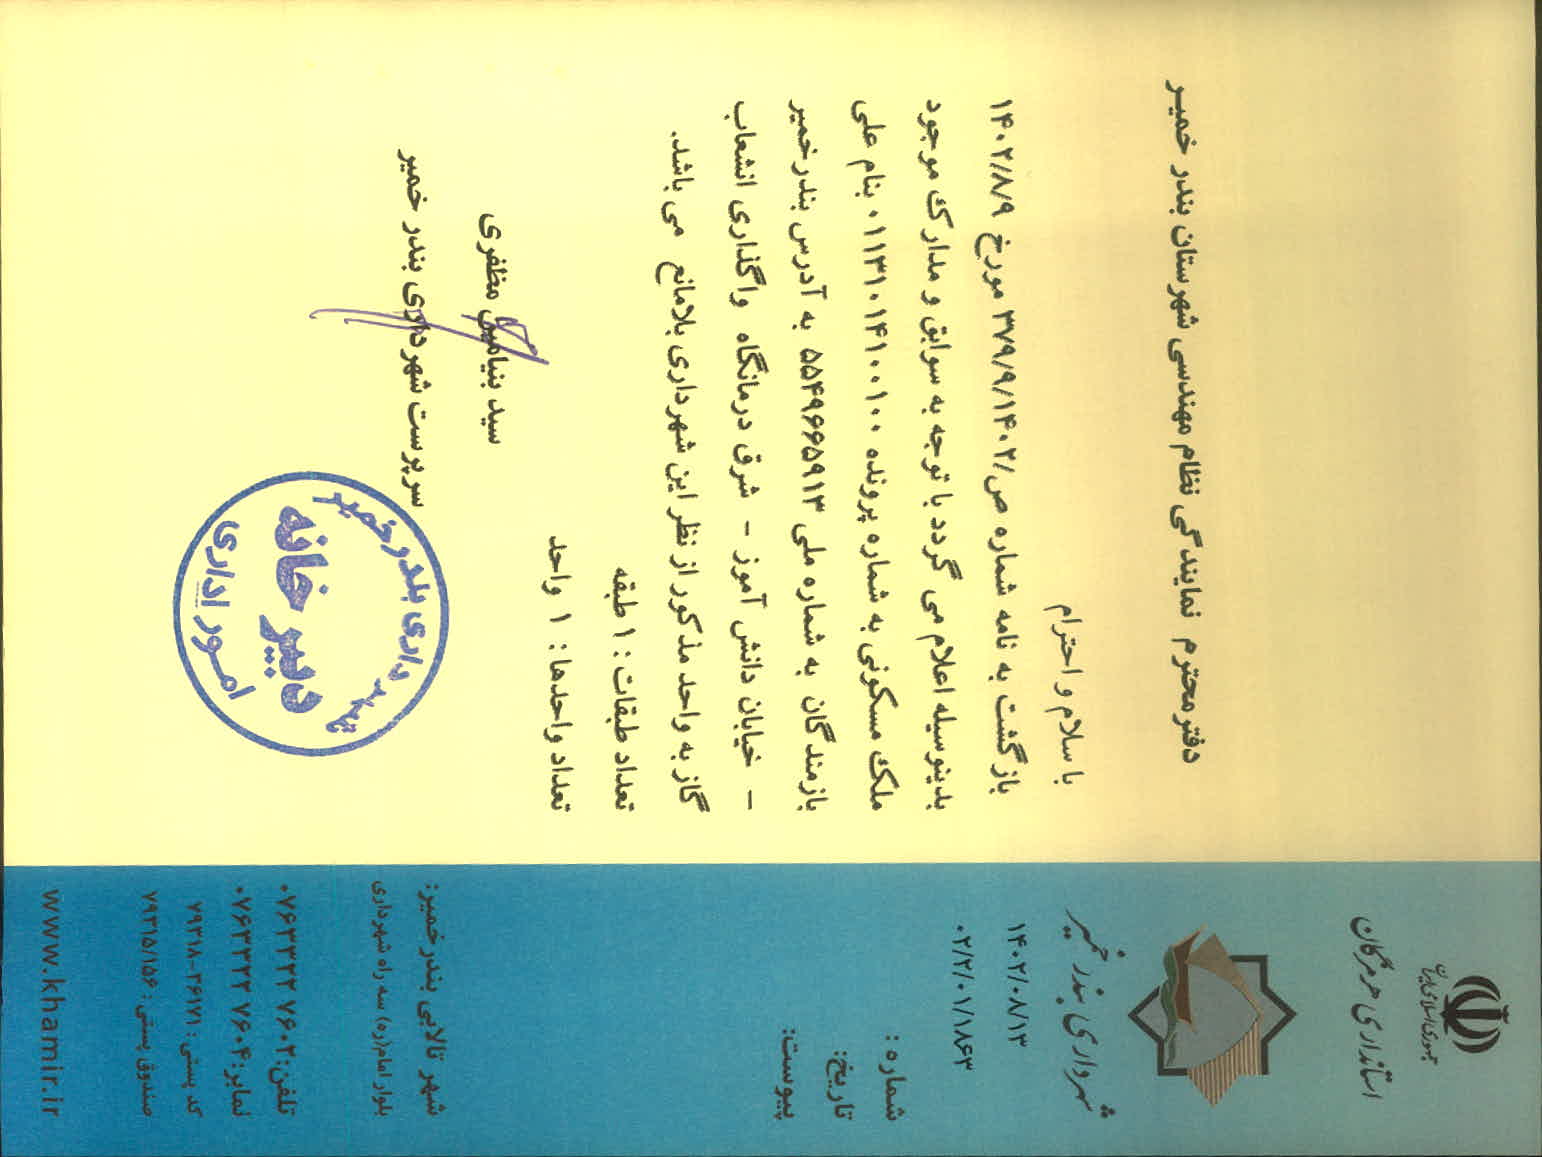 جمهوری اسلامی ایران
استانداری هرمزگان
شهرداری بندر خمیر
۱۴۰۲/۰۸/۱۳
۰۲/۲/۰۱/۱۸۶۳
شماره :
تاریخ:
پیوست:
دفتر محترم نمایندگی نظام مهندسی شهرستان بندر خمیر
با سلام و احترام
بازگشت به نامه شماره ص/۳۷۹/۹/۱۴۰۲ مورخ ۱۴۰۲/۸/۹
بدینوسیله اعلام می گردد با توجه به سوابق و مدارک موجود
ملک مسکونی به شماره پرونده ۰۱۱۳۱۰۱۴۱۰۰۱۰۰ بنام علی
بازمندگان به شماره ملی ۵۵۴۹۶۶۵۹۱۳ به آدرس بندرخمیر
- خیابان دانش آموز - شرق درمانگاه واگذاری انشعاب
گاز به واحد مذکور از نظر این شهرداری بلامانع می باشد.
تعداد طبقات : ۱ طبقه
تعداد واحدها : ۱ واحد
سید بنیامین مظفری
سرپرست شهرداری بندر خمیر
شهرداری بندر خمیر
دبیر خانه
امور اداری
شهر تالابی بندر خمیر:
بلوار امام(ره) سه راه شهرداری
تلفن: ۰۷۶۳۳۲۲ ۷۶۰۲
نمابر: ۰۷۶۳۳۲۲ ۷۶۰۴
کد پستی : ۳۶۱۷۱-۷۹۳۱۸
صندوق پستی : ۷۹۳۱۵/۱۵۶
www.khamir.ir